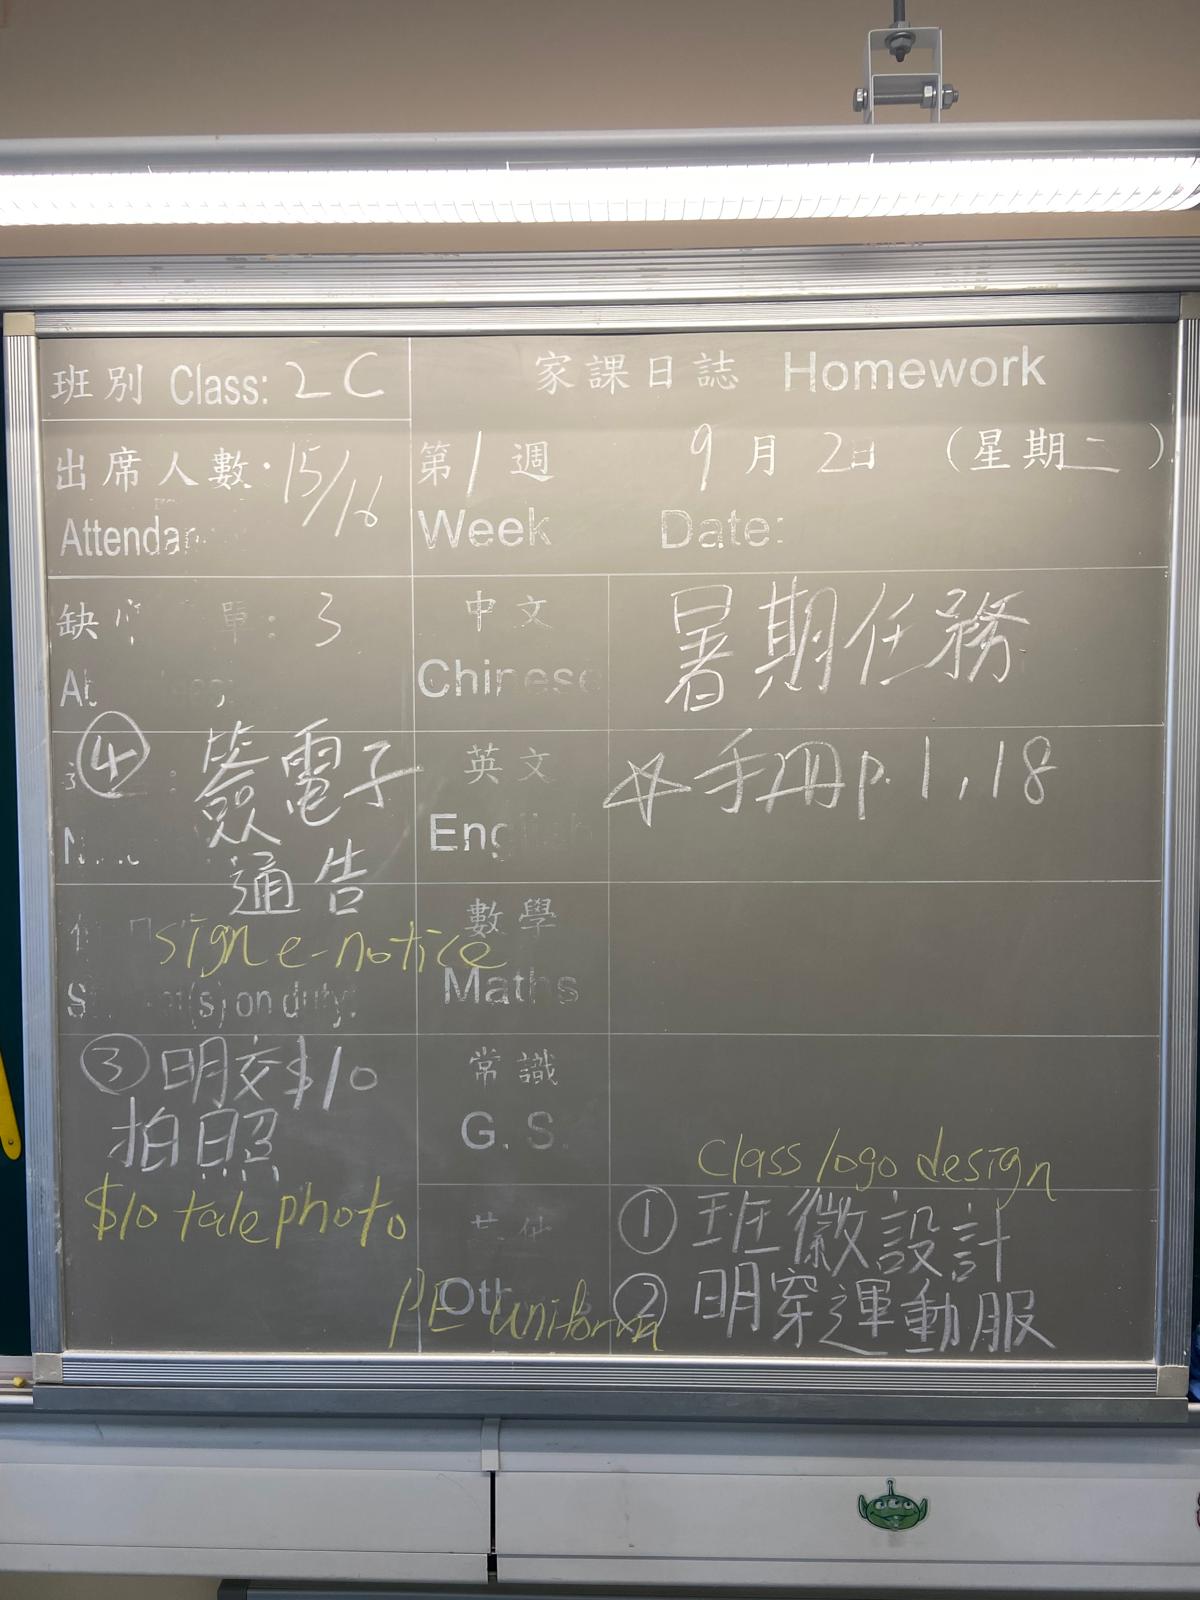 班別 Class: 2C
家課日誌 Homework
出席人數: 15/16
第1週 9月2日 (星期二)
Week Date:
缺 單: 3
中文 暑期任務
Chinese
④ 簽電子
通告
sign e-notice
英文 ☆手冊p.1,18
English
數學
Maths
(s) on duty:
③ 明交$10
拍照
$10 take photo
常識
G. S.
class logo design
其他 ① 班徽設計
② 明穿運動服
PE uniform